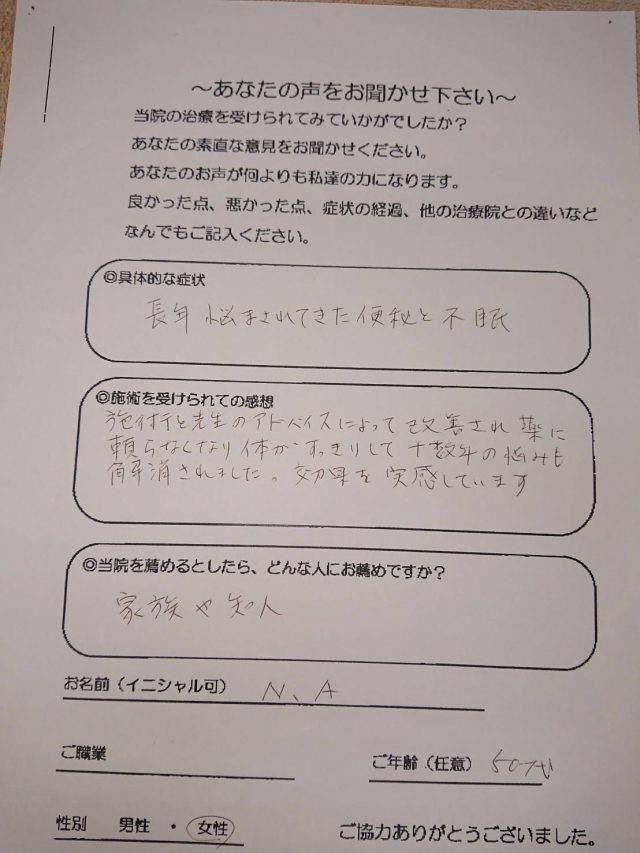 ～あなたの声をお聞かせ下さい～
当院の治療を受けられてみていかがでしたか？
あなたの素直な意見をお聞かせください。
あなたのお声が何よりも私達の力になります。
良かった点、悪かった点、症状の経過、他の治療院との違いなど
なんでもご記入ください。
◎具体的な症状
長年悩まされてきた便秘と不眠
◎施術を受けられての感想
施術と先生のアドバイスによって改善され薬に
頼らなくなり体がすっきりして十数年の悩みも
解消されました。効果を実感しています
◎当院を薦めるとしたら、どんな人にお薦めですか？
家族や知人
お名前（イニシャル可） N、A
ご職業
ご年齢（任意） 50代
性別 男性 ・ 女性
ご協力ありがとうございました。